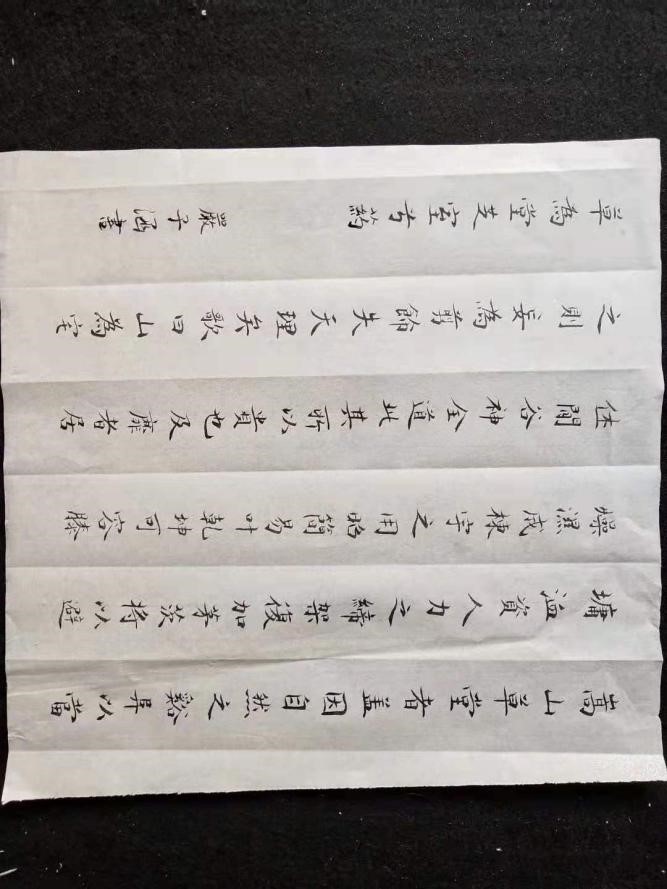 嵩山草堂者盖因自然之谿阜以當
墉洫資人力之締架復加茅茨將以避
燥濕成棟宇之用昭簡易叶乾坤可容膝
休閒谷神全道此其所以貴也及靡者居
之則妄為剪飾失天理矣歌曰山為宅
草為堂芝室兮葯
嚴子涵書